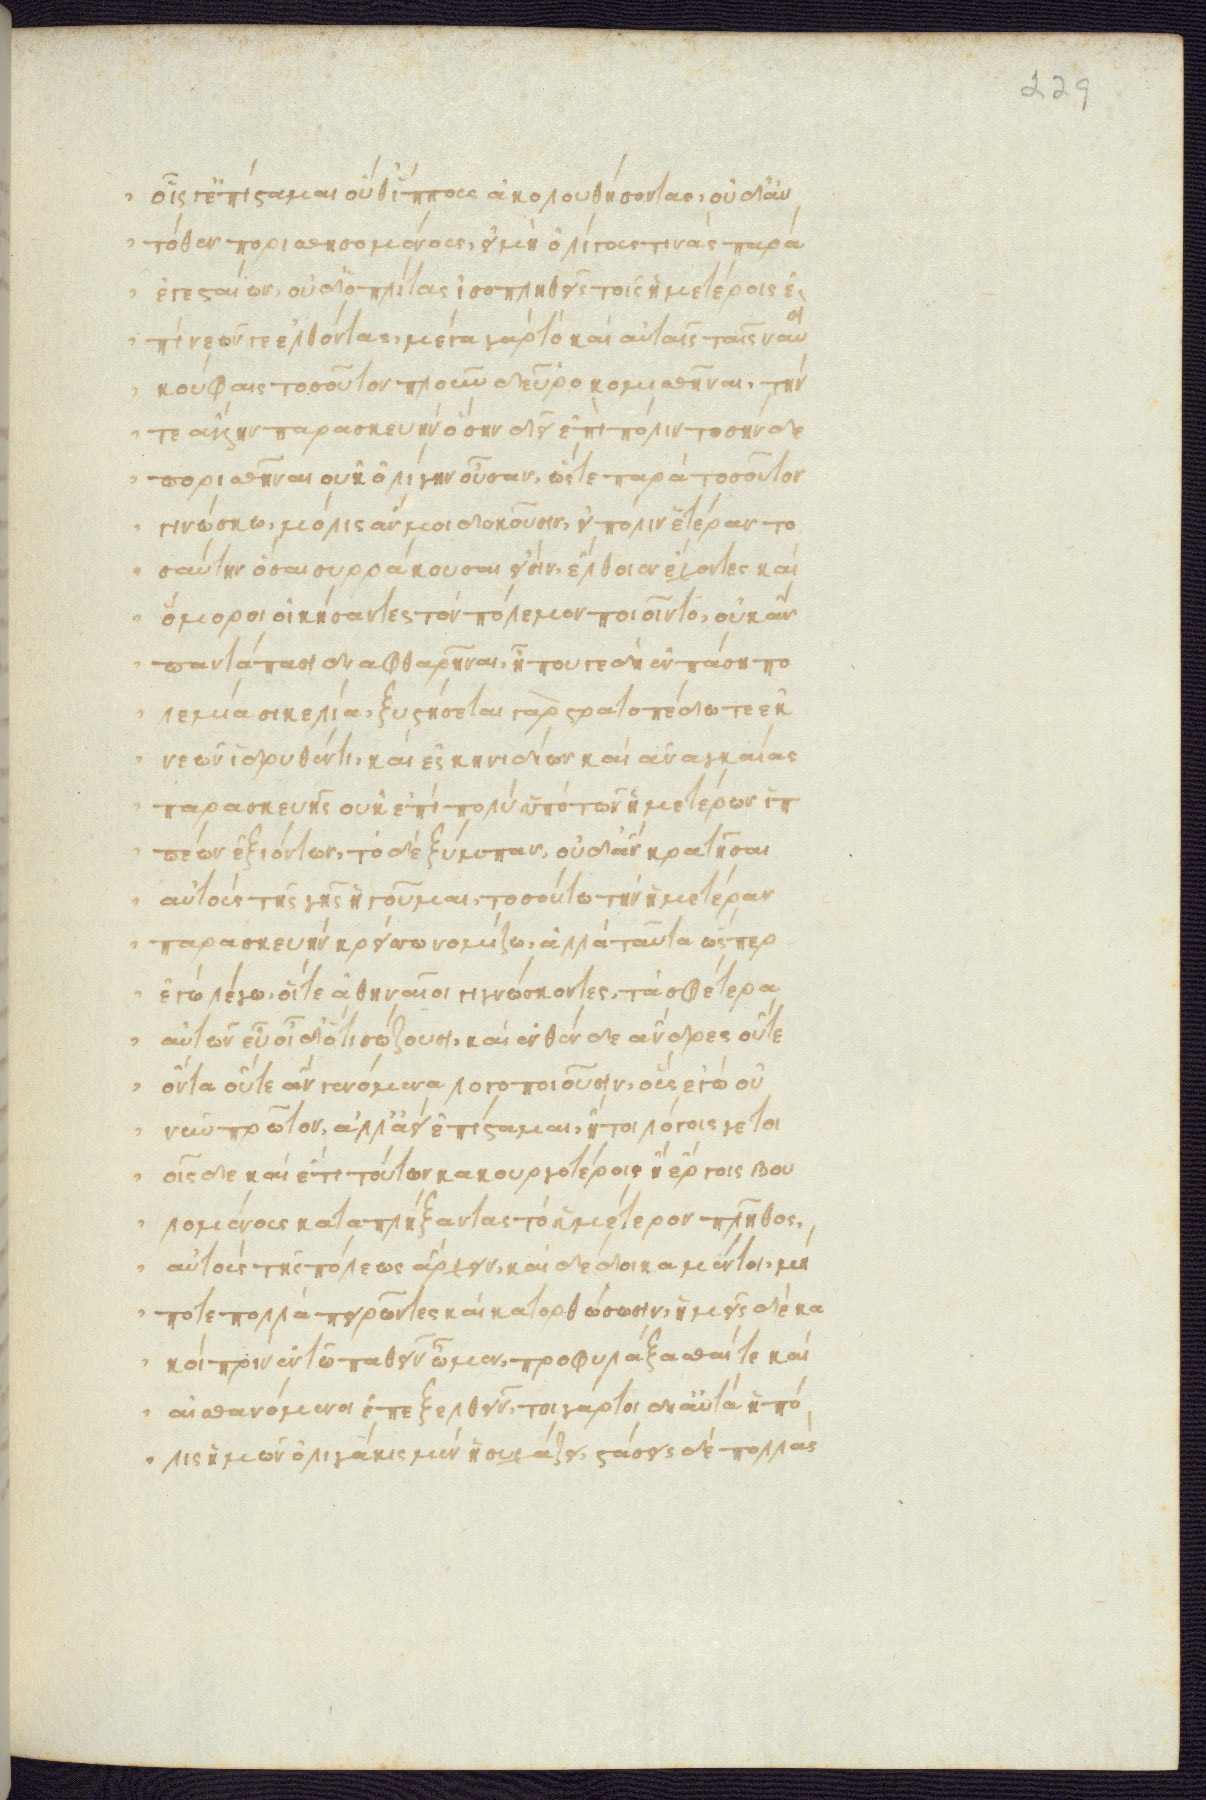 229
οἷς γ' ἐπίσταμαι οὔθ' ἵππους ἀκολουθήσοντας, οὐδ' αὐ
τόθεν πορισθησομένους, εἰ μὴ ὀλίγους τινὰς παρὰ
ἐγεσταίων, οὐδ' ὁπλίτας ἰσοπληθεῖς τοῖς ἡμετέροις ἐ
πὶ νεῶν γε ἐλθόντας, μέγα γὰρ τὸ καὶ αὐταῖς ταῖς ναυσὶ
κούφαις τοσοῦτον πλοῦν δεῦρο κομισθῆναι, τήν
τε ἄλλην παρασκευὴν ὅσην δεῖ ἐπὶ πόλιν τοσήνδε
πορισθῆναι οὐκ ὀλίγην οὖσαν, ὥστε παρὰ τοσοῦτον
γινώσκω, μόλις ἄν μοι δοκοῦσιν, εἰ πόλιν ἑτέραν το
σαύτην ὅσαι συρράκουσαι εἰσίν, ἔλθοιεν ἔχοντες καὶ
ὅμοροι οἰκήσαντες τὸν πόλεμον ποιοῖντο, οὐκ ἂν
παντάπασι διαφθαρῆναι, ἦ που γε δὴ ἐν πάση πο
λεμία σικελία, ξυστήσεται γὰρ στρατοπέδω τε ἐκ
νεῶν ἱδρυθέντι, καὶ ἐκ σκηνιδίων καὶ ἀναγκαίας
παρασκευῆς οὐκ ἐπὶ πολὺ ὑπὸ τῶν ἡμετέρων ἱπ
πέων ἐξιόντων, τὸ δὲ ξύμπαν, οὐδ' ἂν κρατῆσαι
αὐτοὺς τῆς γῆς ἡγοῦμαι, τοσούτω τὴν ἡμετέραν
παρασκευὴν κρείσσω νομίζω, ἀλλὰ ταῦτα ὥσπερ
ἐγὼ λέγω, οἵτε ἀθηναῖοι γιγνώσκοντες, τὰ σφέτερα
αὐτῶν εὖ οἶδ' ὅτι σώζουσι, καὶ ἐνθένδε ἄνδρες οὔτε
ὄντα οὔτε ἂν γενόμενα λογοποιοῦσιν, οὓς ἐγὼ οὐ
νῦν πρῶτον, ἀλλ' ἀεὶ ἐπίσταμαι, ἤτοι λόγοις γε τοι
οῖσδε καὶ ἔτι τούτων κακουργοτέροις ἢ ἔργοις βου
λομένους καταπλήξαντας τὸ ἡμέτερον πλῆθος,
αὐτοὺς τῆς πόλεως ἄρχειν, καὶ δέδοικα μέντοι, μή
ποτε πολλὰ πειρῶντες καὶ κατορθώσωσιν, ἡμεῖς δὲ κα
κοὶ πρὶν ἐν τῶ παθεῖν ὦμεν, προφυλάξασθαί τε καὶ
αἰσθανόμενοι ἐπεξελθεῖν, τοιγάρτοι δι' αὐτὰ ἡ πό
λις ἡμῶν ὀλιγάκις μὲν ἡσυχάζει, στάσεις δὲ πολλὰς